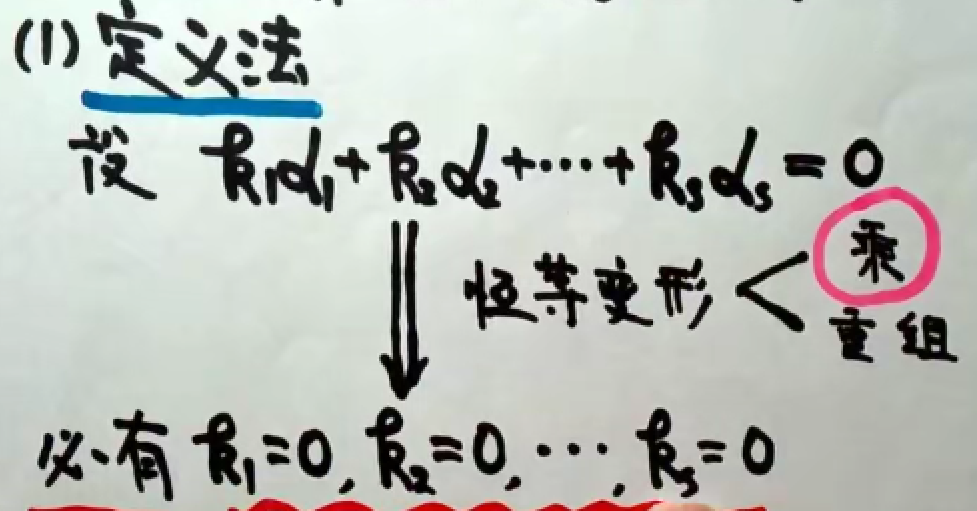 (1) 定义法
设 k₁α₁+k₂α₂+⋯+kₛαₛ=0
乘
恒等变形 <
重组
必有 k₁=0, k₂=0, ⋯, kₛ=0